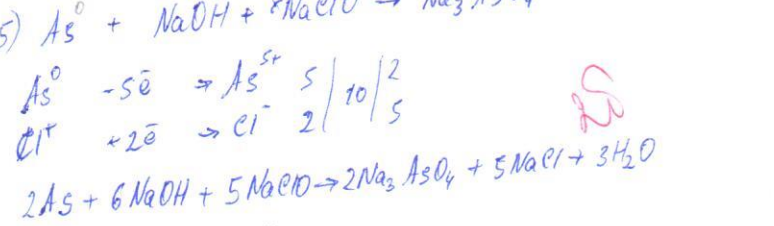 5) As⁰ + NaOH + NaClO →
As⁰ -5ē → As⁵⁺ 5 | 10 | 2
Cl⁺ +2ē → Cl⁻ 2 | | 5
2As + 6NaOH + 5NaClO → 2Na₃AsO₄ + 5NaCl + 3H₂O